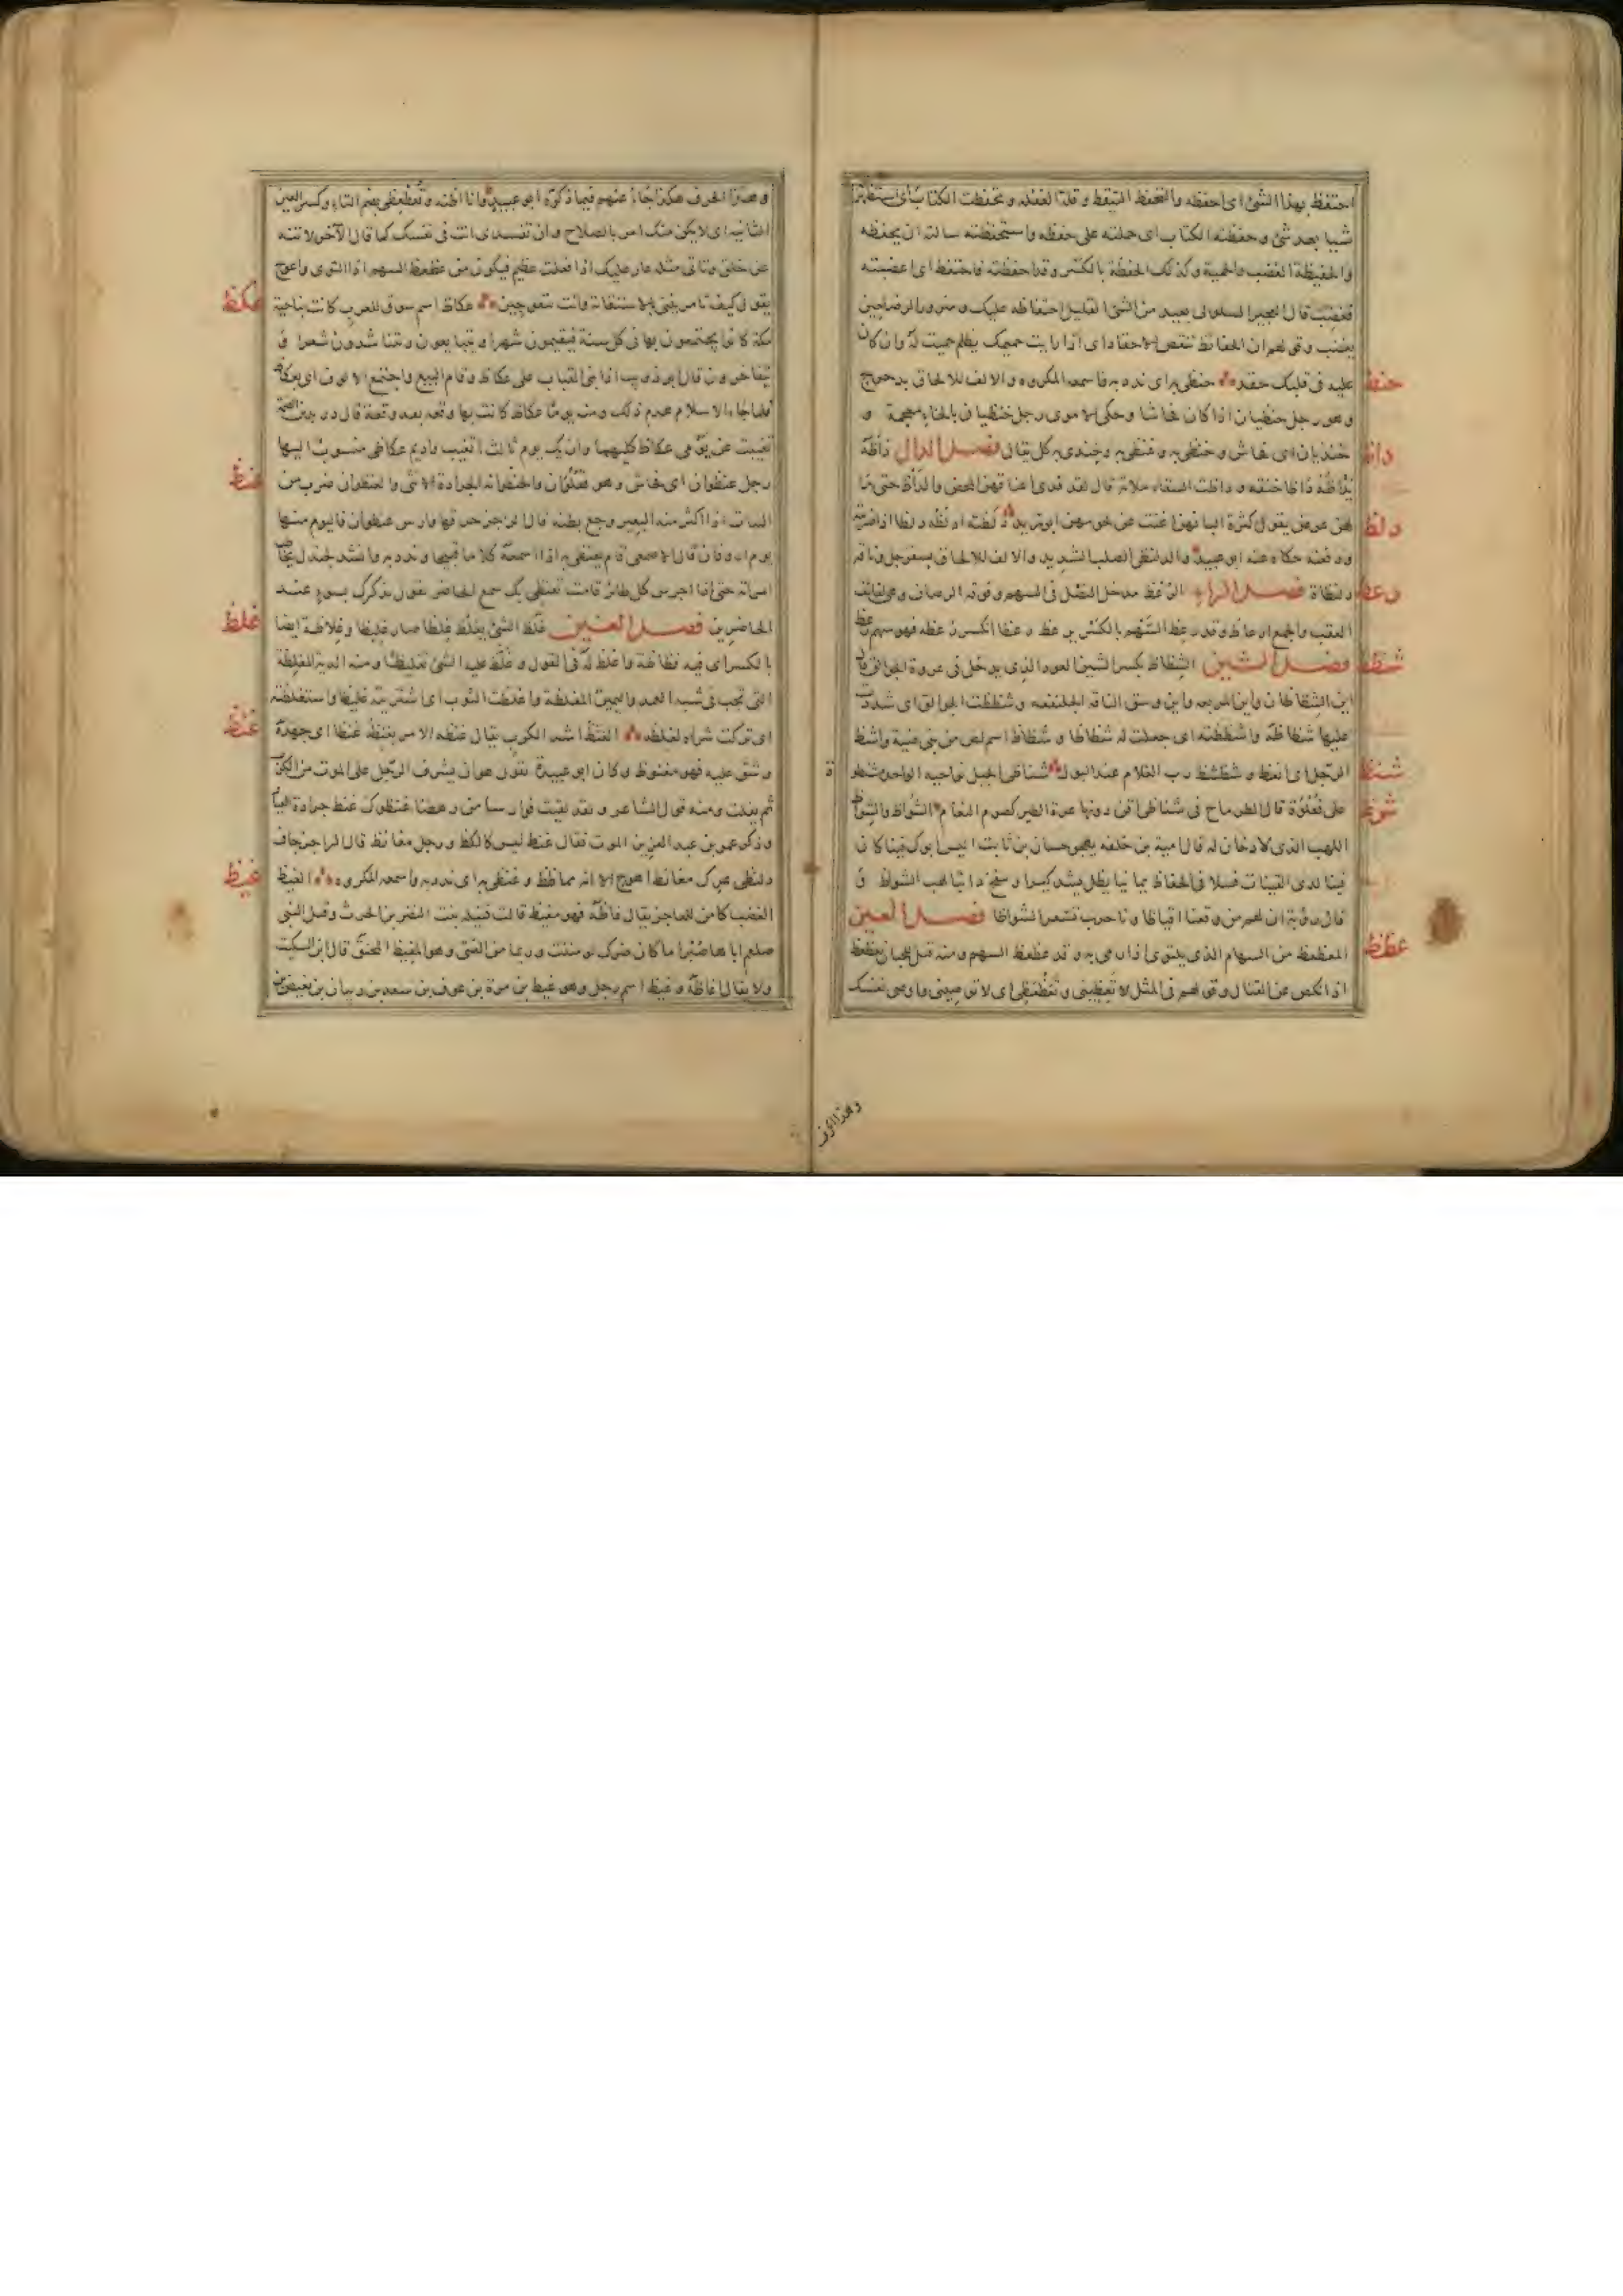 احتفظ بهذا الشئ اى احفظه والتحفظ التيقظ وقلة الغفلة وتحفظت الكتاب اى استظهرته
شيا بعد شئ وحفظته الكتاب اى حملته على حفظه واستحفظته سالته ان يحفظه
والحفيظة الغضب والحمية وكذلك الحفظة بالكسر وقد احفظته فاحتفظ اى اغضبته
فغضب قال العجير السلولى بعيد من الشئ القليل احتفاظه عليك ومنزور الرضا حين
يغضب وقولهم ان الحفائظ تنقض الاحقاد اى اذا رايت حميمك يظلم حميت له وان كان
حنظ
عليه فى قلبك حقد حنظى به اى ندد به واسمعه المكروه والالف للالحاق بدحرج
وهو رجل حنظيان اذا كان فحاشا وحكى الاموى رجل خنظيان بالخاء معجمة و
داظ
خنذيان اى فحاش وحنظى به وغنظى به وخندى به كل يقال فصل الدال دأظه
يدأظه دأظا خنقه ودأظت السقاء ملاته قال لقد فدى اعناقهن المحض والدأظ حتى ما
دلظ
لهن غرض يقول كثرة البانهن اغنت عن نحرهن ابو زيد دلظته ادلظه دلظا اذا ضربته
ودفعته حكاه عنه ابو عبيد والدلنظى الصلب الشديد والالف للالحاق بسفرجل وناقة
رعظ
دلنظاة فصل الراء الرعظ مدخل النصل فى السهم وفوقه الرصاف وهى لفائف
العقب والجمع ارعاظ وقد رعظ السهم بالكسر يرعظ رعظا انكسر رعظه فهو سهم رعظ
شظظ
فصل الشين الشظاظ بكسر الشين العود الذى يدخل فى عروة الجوالق
اين الشظاظان واين المربعه واين وسق الناقة الجلنفعه وشظظت الجوالق اى شددت
عليها شظاظة واشظظته اى جعلت له شظاظا وشظاظ اسم لص من بنى ضبة واشظ
شنظ
الرجل اى انعظ وشظشظ زب الغلام عند البول شناظى الجبل نواحيه الواحدة شنظوة
شوظ
على فعلوة قال الطرماح فى شناظى اقن دونها عرة الطير كصوم النعام الشواظ والشواظ
اللهب الذى لا دخان له قال امية بن خلف يهجو حسان بن ثابت اليس ابوك فينا كان
قينا لدى القينات فسلا فى الحفاظ يمانيا يظل يشد كيرا وينفخ دائبا لهب الشواظ و
قال رؤبة ان لهم من وقعنا اقياظا ونار حرب تسعر الشواظا فصل العين
عظظ
المعظعظ من السهام الذى يلتوى اذا رمى به وقد عظعظ السهم ومنه قيل للجبان يعظعظ
اذا نكص عن القتال وقولهم فى المثل لا تعظينى وتعظعظى اى لا توصينى واوصى نفسك
وهذا الحرف
وهذا الحرف هكذا جاء عنهم فيما ذكره ابو عبيد وانا اظنه وتعظعظى بضم التاء وكسر العين
الثانية اى لا يكن منك امر بالصلاح وان تفسدى انت فى نفسك كما قال الآخر لا تنه
عن خلق وتاتى مثله عار عليك اذا فعلت عظيم فيكون من عظعظ السهم اذا التوى واعوج
عكظ
يقول كيف تامريننى بالاستقامة وانت تتعوجين عكاظ اسم سوق للعرب كانت بناحية
مكة كانوا يجتمعون بها فى كل سنة فيقيمون شهرا ويتبايعون ويتناشدون شعرا و
يتفاخرون قال ابو ذويب اذا بنى القباب على عكاظ وقام البيع واجتمع الالوف اى بعكاظ
فلما جاء الاسلام هدم ذلك ومنه يوما عكاظ كانت بها وقعة بعد وقعة قال دريد بن الصمة
تغيبت عن يومى عكاظ كليهما وان يك يوم ثالث اتغيب واديم عكاظى منسوب اليها
عنظ
رجل عنظوان اى فحاش وهو فعلوان والعنظوانة الجرادة الانثى والعنظوان ضرب من
النبات اذا اكثر منه البعير وجع بطنه قال الراجز حرقها وارس عنظوان فاليوم منها
يوم ارونان قال الاصمعى قام يعنظى به اذا اسمعه كلاما قبيحا وندد به وانشد لجندل يخاطب
امراته حتى اذا اجرس كل طائر قامت تعنظى بك سمع الحاضر يقول تذكرك بسوء عند
غلظ
الحاضرين فصل الغين غلظ الشئ يغلظ غلظا صار غليظا وغلاظة ايضا
بالكسر اى فيه فظاظة واغلظ له فى القول وغلظ عليه الشئ تغليظا ومنه الدية المغلظة
التى تجب فى شبه العمد واليمين المغلظة واغلظت الثوب اى اشتريته غليظا واستغلظته
غنظ
اى تركت شراه لغلظه الغنظ اشد الكرب يقال غنظه الامر يغنظه غنظا اى جهده
وشق عليه فهو مغنوظ وكان ابو عبيدة يقول هو ان يشرف الرجل على الموت من الكرب
ثم يفلت ومنه قول الشاعر ولقد لقيت فوارسا من رهطنا غنظوك غنظ جرادة العيار
وذكر عمر بن عبد العزيز الموت فقال غنظ ليس كالغنظ ورجل مغانظ قال الراجز جاف
غيظ
دلنظى عرك مغانظ اهوج الا انه مماظظ وغنظى به اى ندد به واسمعه المكروه الغيظ
الغضب كامن للعاجز يقال غاظه فهو مغيظ قالت قتيلة بنت النضر بن الحرث وقتل النبى
صلعم اباها صبرا ما كان ضرك لو مننت وربما من الفتى وهو المغيظ المحنق قال ابن السكيت
ولا يقال اغاظه وغيظ اسم رجل وهو غيظ بن مرة بن عوف بن سعد بن ذبيان بن بغيض بن